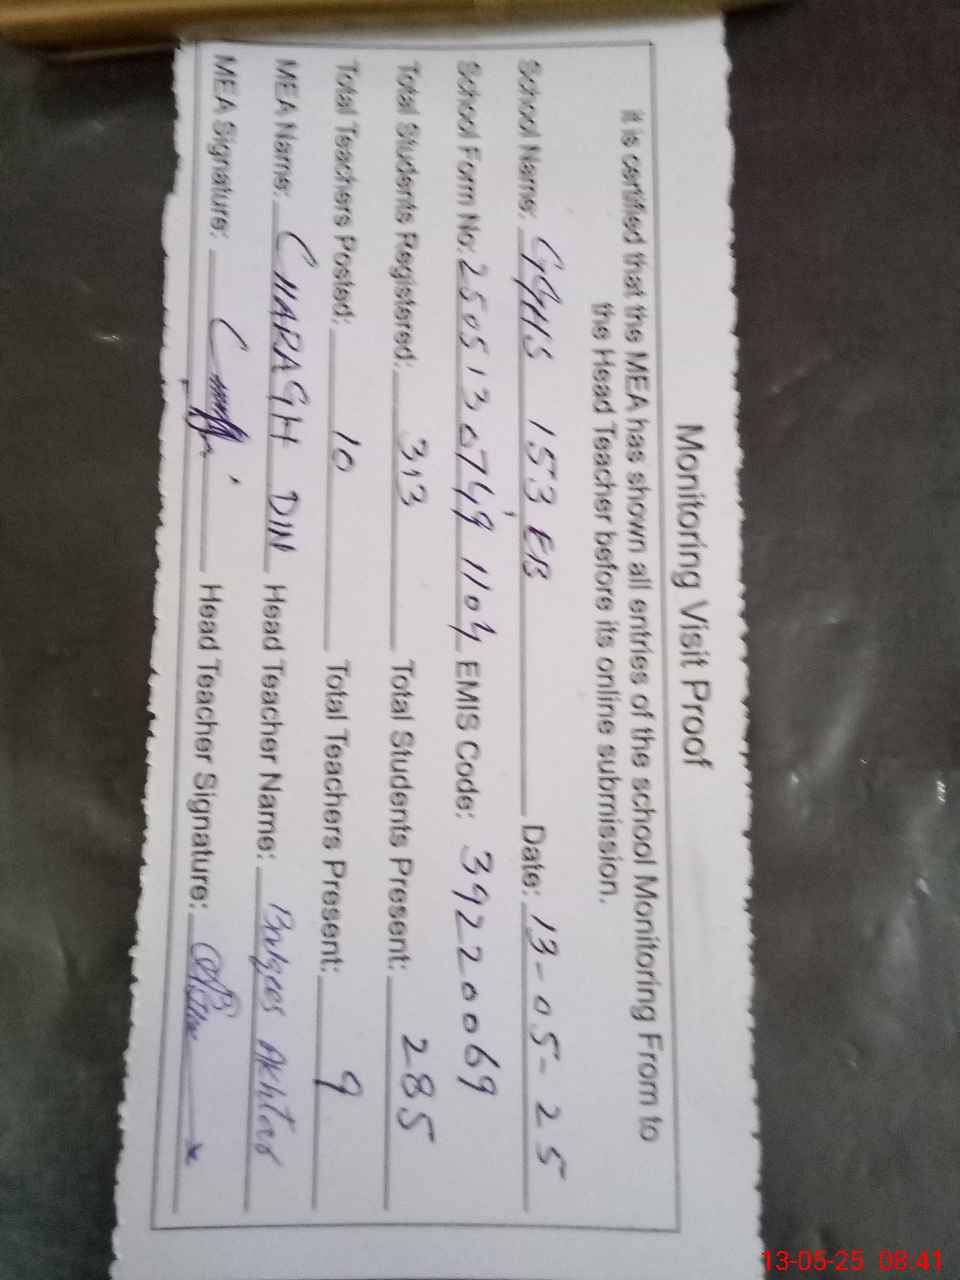 Monitoring Visit Proof
It is certified that the MEA has shown all entries of the school Monitoring From to
the Head Teacher before its online submission.
School Name: GGHS 153 EB Date: 13-05-25
School Form No: 2505130749 1104 EMIS Code: 39220069
Total Students Registered: 313 Total Students Present: 285
Total Teachers Posted: 10 Total Teachers Present: 9
MEA Name: CHARAGH DIN Head Teacher Name: Balqees Akhtar
MEA Signature: Head Teacher Signature:
13-05-25 08:41